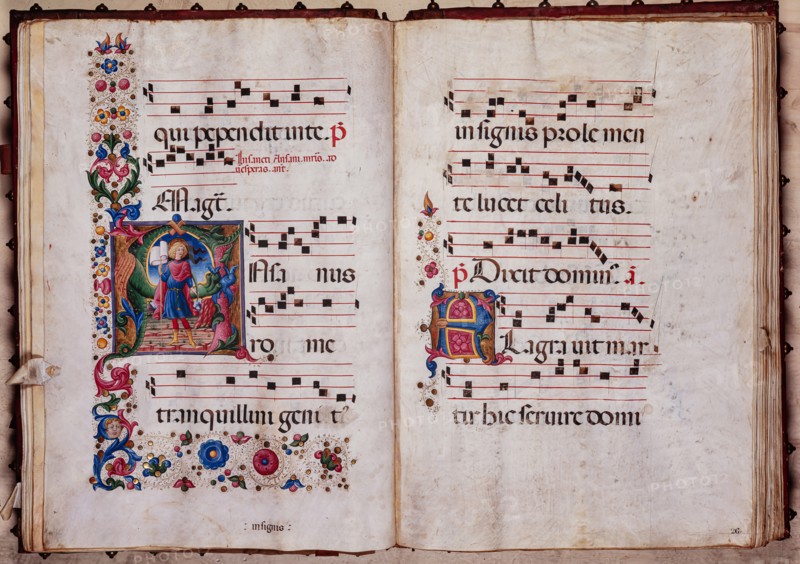 qui pependit in te. p̄
In sancti Ansani. mr̄is. ad
uesperas. ant.
Magt̄.
Ansa nus
ro me
tranquillini geni t
: insignis :
insignis prole men
te lucet celi tus.
p̄ Dirit domin̄. ā.
Flagra uit mar
tir hic seruire domi